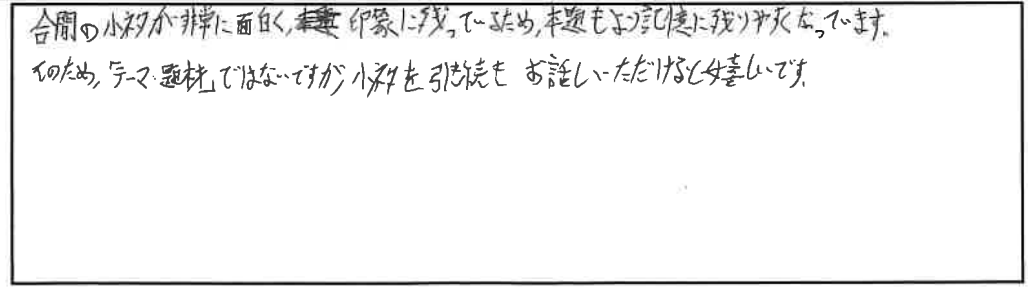 合間の小ネタが非常に面白く,印象に残っているため,本題もより記憶に残りやすくなっています。
そのため,「テーマ・題材」ではないですが,小ネタを引き続きお話しいただけると嬉しいです。